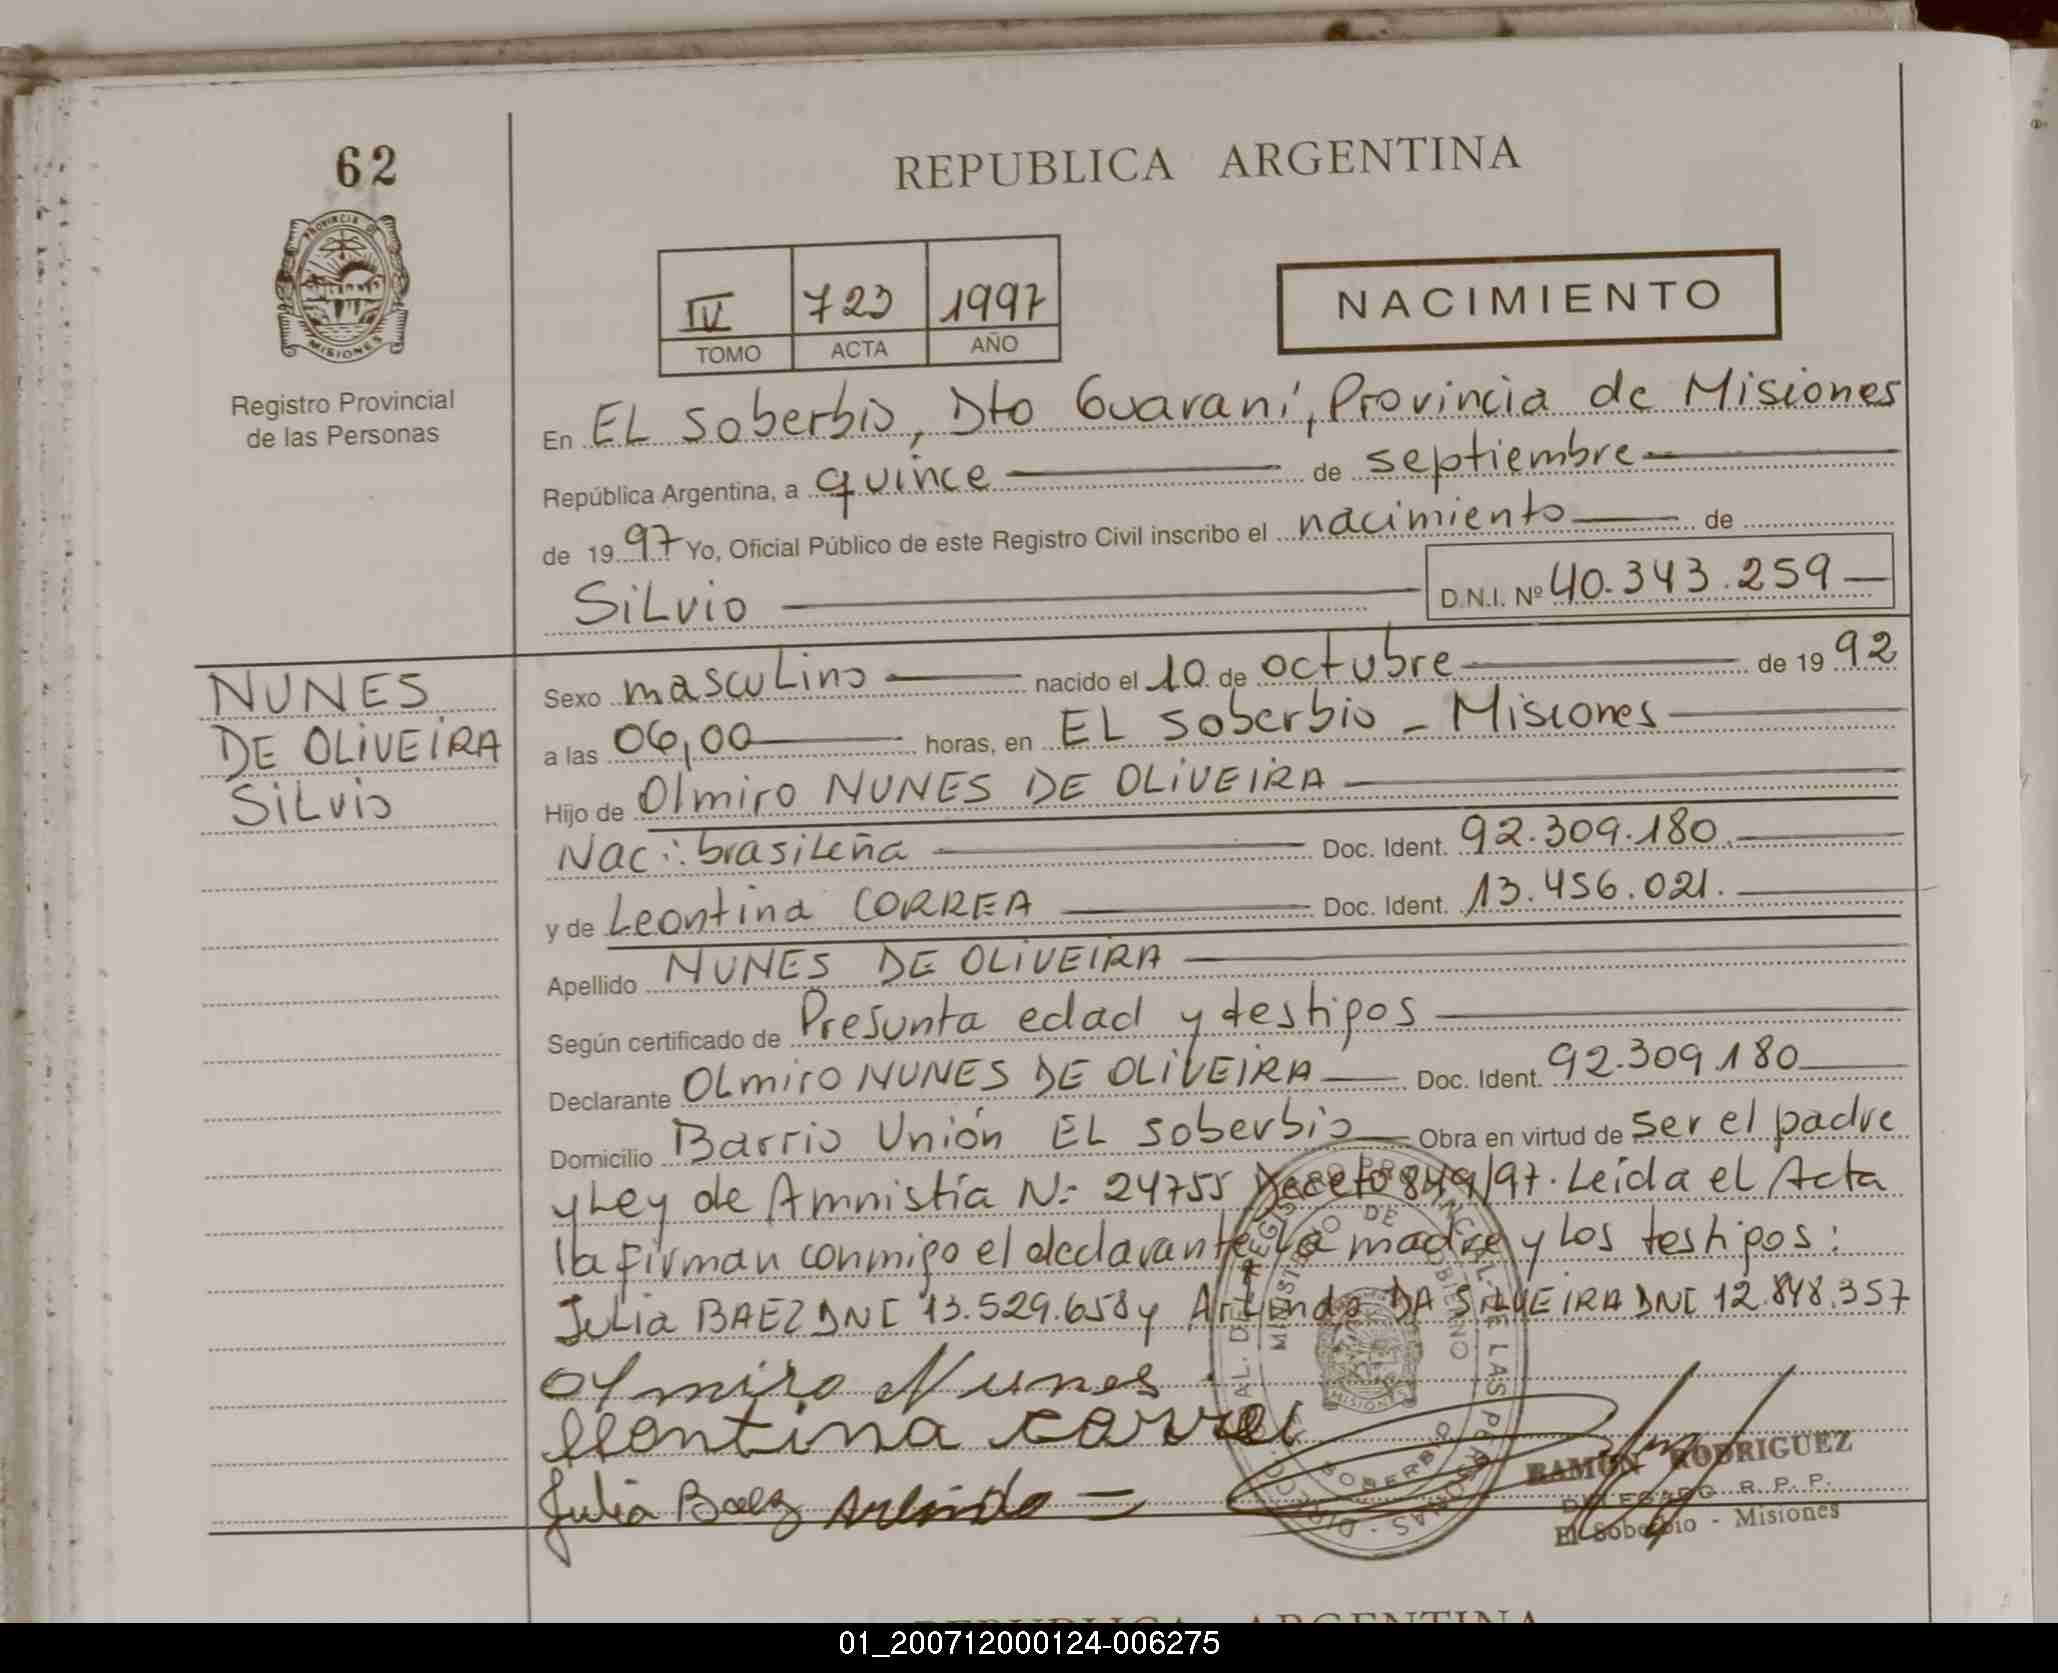 62
REPUBLICA ARGENTINA
PROVINCIA DE
MISIONES
Registro Provincial
de las Personas
IV 723 1997
TOMO ACTA AÑO
NACIMIENTO
En EL Soberbio, Dto Guaraní, Provincia de Misiones
República Argentina, a quince de septiembre
de 1997 Yo, Oficial Público de este Registro Civil inscribo el nacimiento de
SiLvio D.N.I. Nº 40.343.259
NUNES
DE OLiVEiRA
SiLvio
Sexo mascuLino nacido el 10 de octubre de 1992
a las 06,00 horas, en EL Soberbio - Misiones
Hijo de Olmiro NUNES DE OLiVEiRA
Nac.: brasiLeña Doc. Ident. 92.309.180
y de Leontina CORREA Doc. Ident. 13.456.021.
Apellido NUNES DE OLiVEiRA
Según certificado de Presunta edad y testigos
Declarante OLmiro NUNES DE OLiVEiRA Doc. Ident. 92.309.180
Domicilio Barrio Unión EL Soberbio Obra en virtud de ser el padre
y Ley de Amnistía Nº 24755 Deceto 849/97. Leída el Acta
la firman conmigo el declarante la madre y Los testigos:
JuLia BAEZ DNI 13.529.658 y ArLindo DA SiLVEiRA DNI 12.848.357
Olmiro Nunes
lleontina correa
Julia Baez Arlindo
MINISTERIO DE GOBIERNO
MISIONES
SOBERBIO
RAMON RODRIGUEZ
DELEGADO R. P. P.
El Soberbio - Misiones
REPUBLICA ARGENTINA
01_200712000124-006275